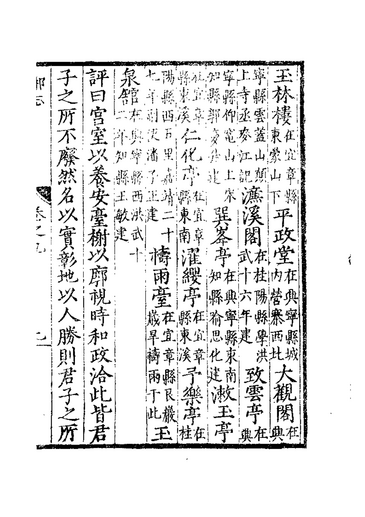 玉林樓在宜章縣東蒙山下平政堂在興寧縣城内營寨西北大觀閣在興
寧縣雲蓋山顛上寺丞麥江記濂溪閣在桂陽縣學洪武十六年建致雲亭在興
寧縣仰山上宋知縣建巽峯亭在興寧縣東南知縣俞思化建漱玉亭
在宜章縣東溪仁化亭在宜章縣東南濯纓亭在宜章縣東溪予樂亭在桂
陽縣西五里嘉靖二十七年判潘子正建禱雨臺在宜章縣艮巖歲旱禱雨于此玉
泉舘在興寧縣西洪武十二年知縣王敏建
評曰宮室以養安臺榭以廓視時和政洽此皆君
子之所不廢然名以實彰地以人勝則君子之所
卷之九